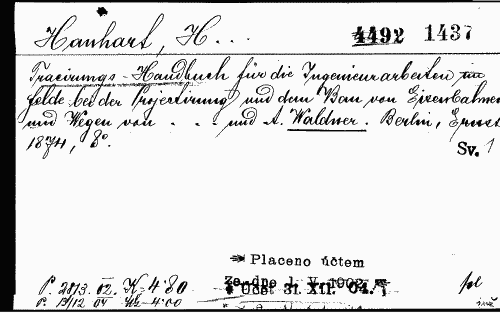 Hanhart, H...
4492 1437
Tracirungs-Handbuch für die Ingenieurarbeiten im
felde bei der Projectirung und dem Bau von Eisenbahnen
und Wegen von . . . und A. Waldner. Berlin, Ernst
1874, 8°.
Sv. 1
Placeno účtem
P. 28/3. 02. K 4·80
Ze dne 1. V. 1902
Účet 31. XII. 04.
P. 13/12 04 K 4·00